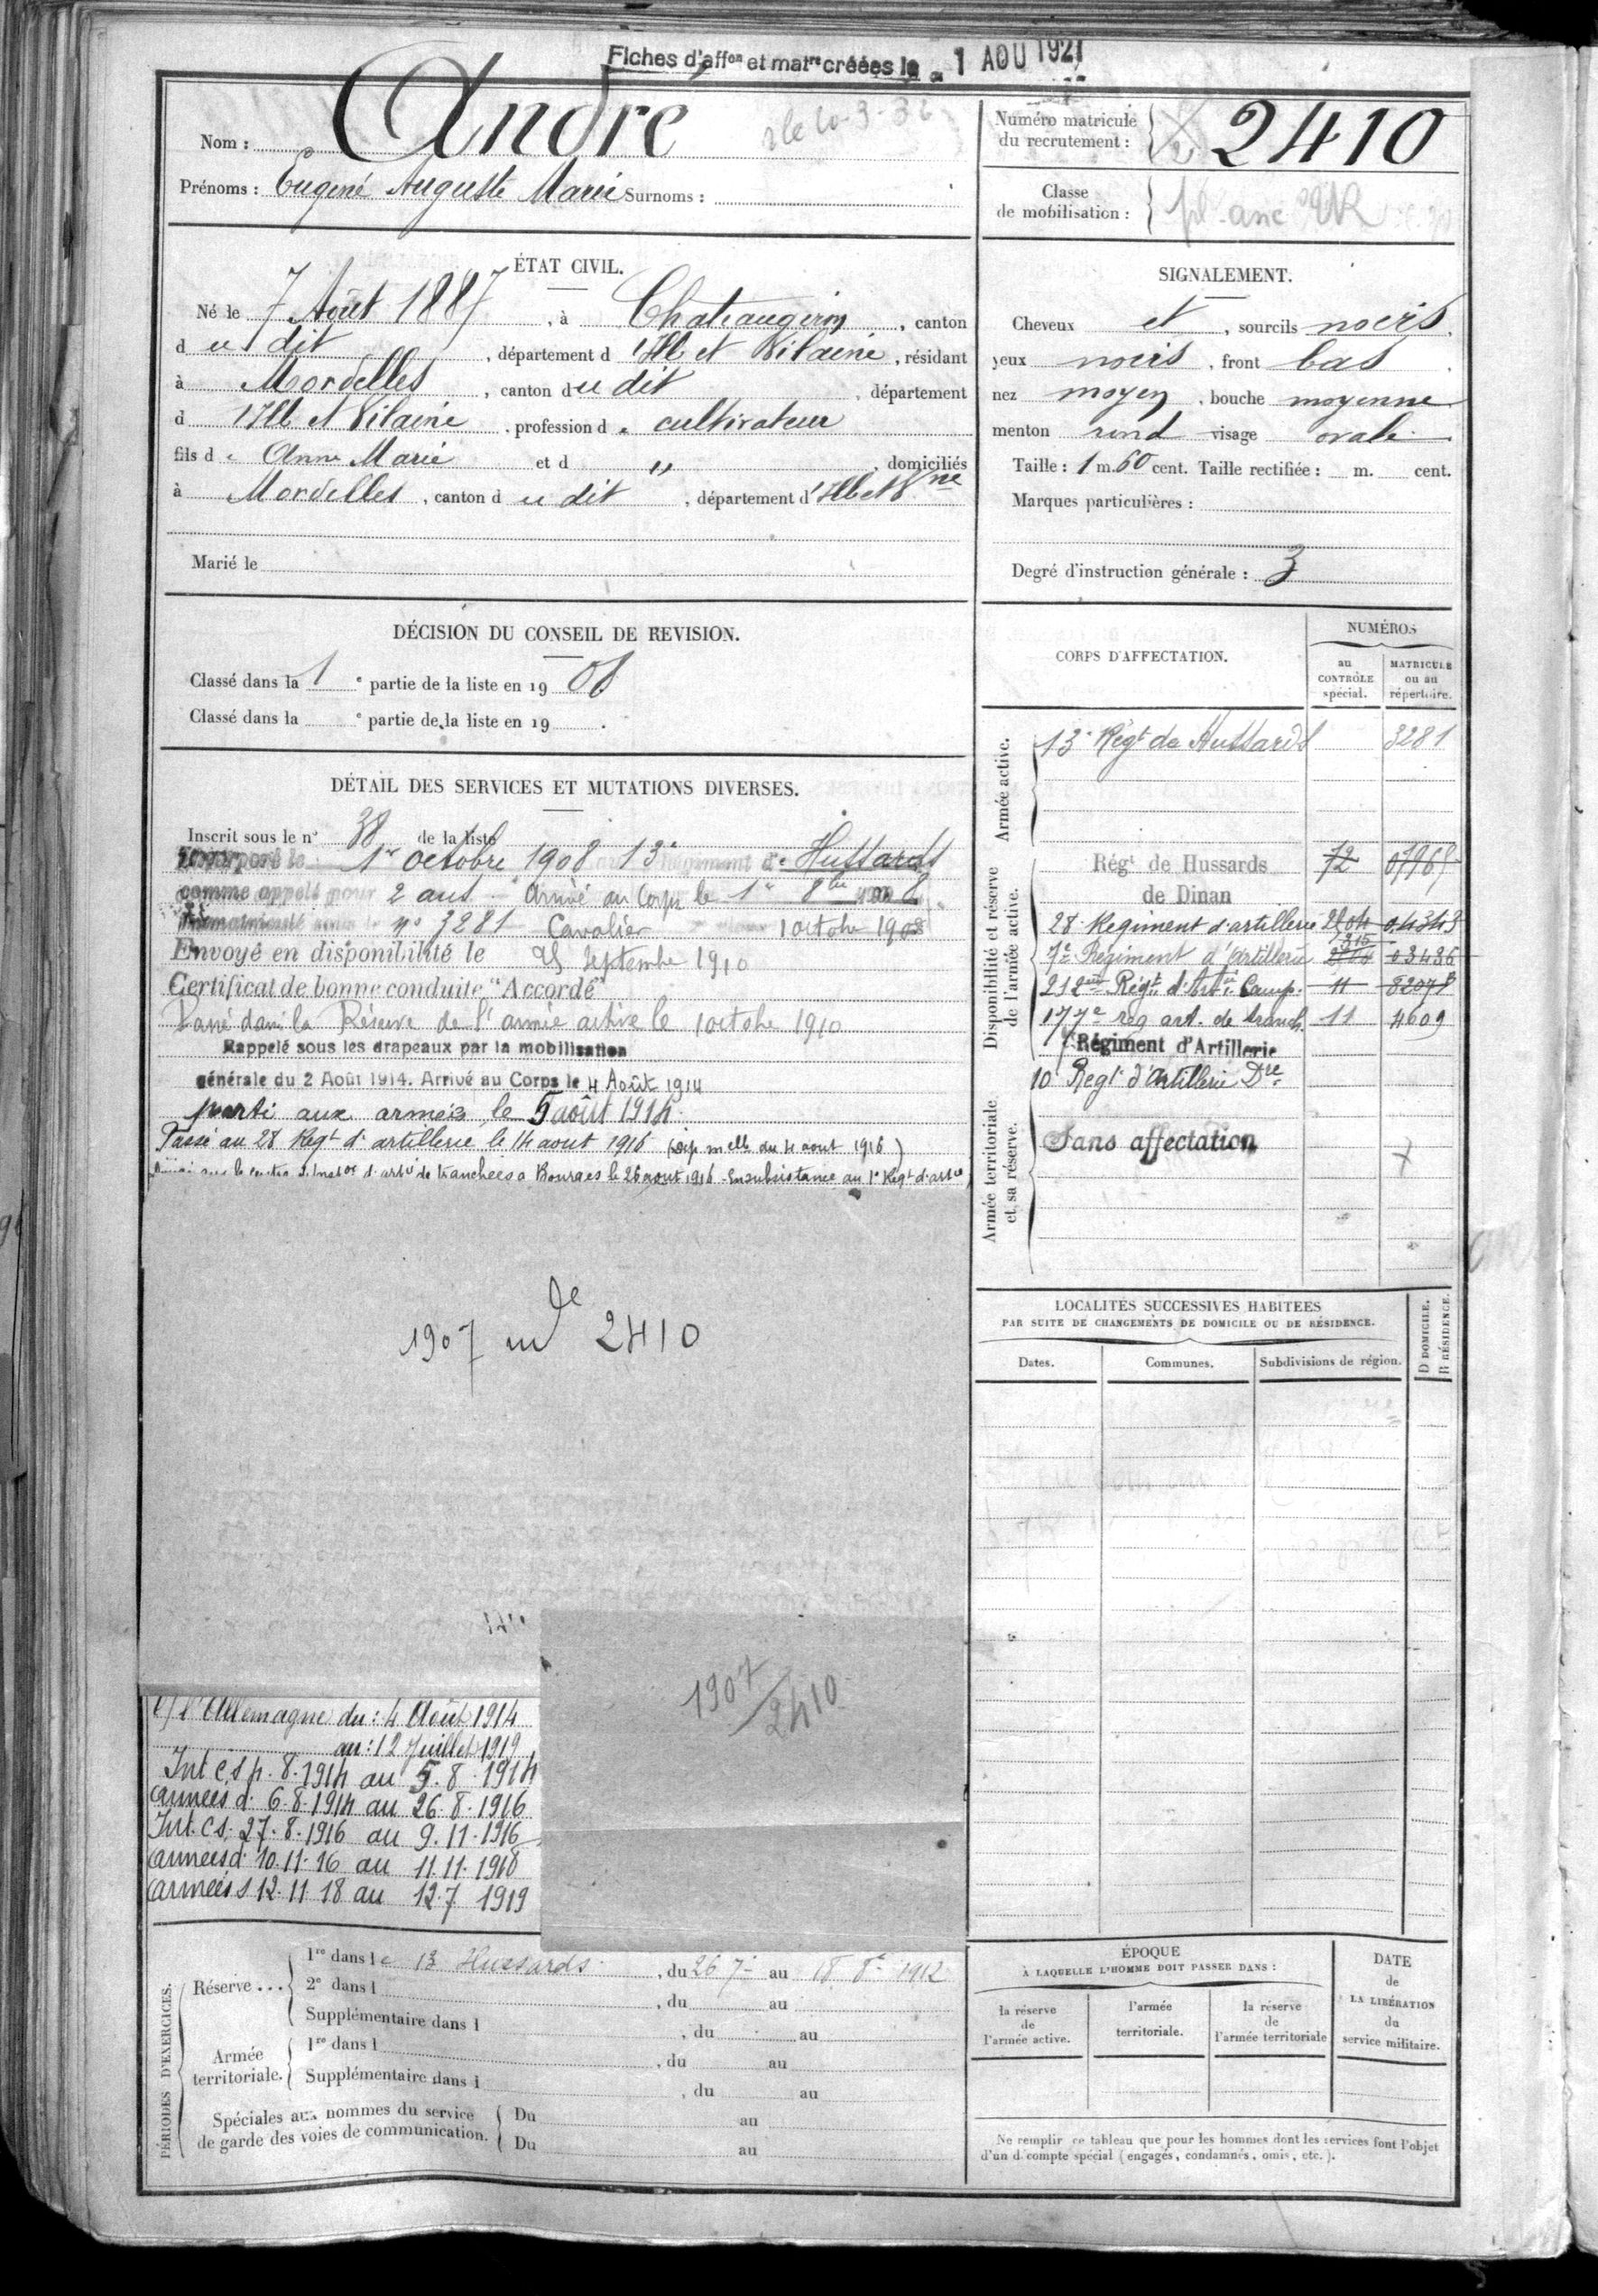 Fiches d'affon et matre créées le 1 AOU 1921
Nom : André
Prénoms : Eugene Auguste Marie Surnoms :
Numéro matricule du recrutement : 2410
Classe de mobilisation :
ÉTAT CIVIL.
Né le 7 Août 1887, à Chateaugiron, canton
du dit, département d'Ille et Vilaine, résidant
à Mordelles, canton du dit, département
d'Ille et Vilaine, profession de cultivateur
fils de Anne Marie et d " , domiciliés
à Mordelles, canton du dit, département d'Ille et Vne
Marié le
SIGNALEMENT.
Cheveux et , sourcils noirs.
yeux noirs, front bas.
nez moyen, bouche moyenne
menton rond visage ovale
Taille : 1 m. 60 cent. Taille rectifiée : m. cent.
Marques particulières :
Degré d'instruction générale : 3
DÉCISION DU CONSEIL DE REVISION.
Classé dans la 1e partie de la liste en 1908
Classé dans la e partie de la liste en 19 .
DÉTAIL DES SERVICES ET MUTATIONS DIVERSES.
Inscrit sous le n° 38 de la liste
Incorporé le 1er octobre 1908 13e Régiment de Hussards
comme appelé pour 2 ans Arrivé au Corps le 1er 8bre 1908
Immatriculé sous le n° 3281 Cavalier 1 octobre 1908
Envoyé en disponibilité le 25 septembre 1910
Certificat de bonne conduite "Accordé"
Passé dans la Réserve de l'armée active le 1 octobre 1910
Rappelé sous les drapeaux par la mobilisation
générale du 2 Août 1914. Arrivé au Corps le 4 Août 1914
parti aux armées le 5 août 1914.
Passé au 28 Regt d'artillerie le 14 aout 1916 (Dép. melle du 4 aout 1916)
de tranchées a Bourges le 26 aout 1916 - En subsistance au 1er Regt d'artie
1907 md de 2410
1907/2410
c/ l'Allemagne du : 4 Août 1914
au : 12 Juillet 1919
Int. C.S 4.8.1914 au 5.8.1914
armées d. 6.8.1914 au 26.8.1916
Int. C.S. 27.8.1916 au 9.11.1916
armées d. 10.11.16 au 11.11.1918
armées s 12.11.18 au 12.7.1919
CORPS D'AFFECTATION.
NUMÉROS
au CONTRÔLE spécial.
MATRICULE ou au répertoire.
Armée active.
13e Régt de Hussards 3281
Disponibilité et réserve de l'armée active.
Régt de Hussards 72
de Dinan
28e Regiment d'artillerie 04343
7e Régiment d'Artillerie 03486
212me Régt d'Artie Camp. 11
177e reg art. de tranch. 11 4609
7 Régiment d'Artillerie
10e Regt d'Artillerie Dre
Armée territoriale et sa réserve.
Sans affectation
LOCALITÉS SUCCESSIVES HABITÉES
PAR SUITE DE CHANGEMENTS DE DOMICILE OU DE RÉSIDENCE.
Dates. Communes. Subdivisions de région. D DOMICILE. R RÉSIDENCE.
PÉRIODES D'EXERCICES.
Réserve ... 1re dans le 13 Hussards, du 26 7 au 18 8 1912
2e dans l , du au
Supplémentaire dans l , du au
Armée territoriale. 1re dans l , du au
Supplémentaire dans l , du au
Spéciales aux hommes du service de garde des voies de communication. Du au
Du au
ÉPOQUE
À LAQUELLE L'HOMME DOIT PASSER DANS :
la réserve de l'armée active.
l'armée territoriale.
la réserve de l'armée territoriale
DATE de LA LIBÉRATION du service militaire.
Ne remplir ce tableau que pour les hommes dont les services font l'objet
d'un décompte spécial (engagés, condamnés, omis, etc.).